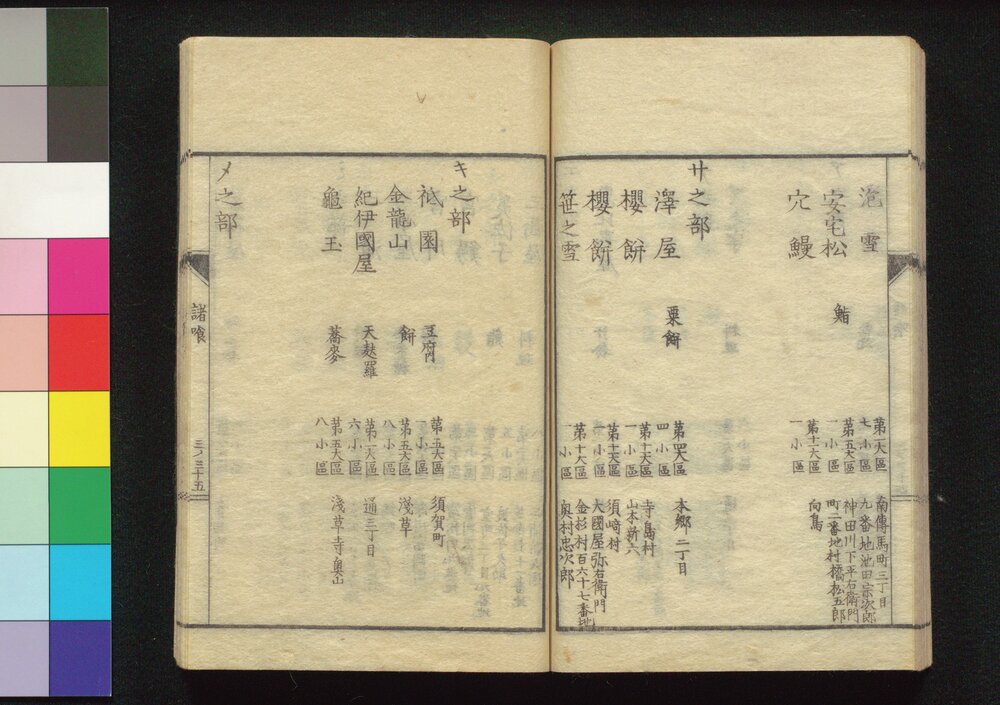 泡雪 第一大區 七小區 南傳馬町三丁目 九番地池田宗次郎
安宅松 鮨 第五大區 一小區 神田川下平右衛門 町二番地村橋松五郎
穴鰻 第十一大區 一小區 向島
サ之部
澤屋 粟餅 第四大區 四小區 本郷二丁目
櫻餅 第十一大區 一小區 寺島村 山本新六
櫻餅 第十一大區 一小區 須崎村 大國屋弥右衛門
笹之雪 第十大區 一小區 金杉村百六十七番地 奥村忠次郎
キ之部
祗園 豆腐 第五大區 一小區 須賀町
金龍山 餅 第五大區 八小區 淺草
紀伊國屋 天麸羅 第一大區 六小區 通三丁目
龜玉 蕎麥 第五大區 八小區 淺草寺奥山
メ之部
諸喰 三ノ三十五